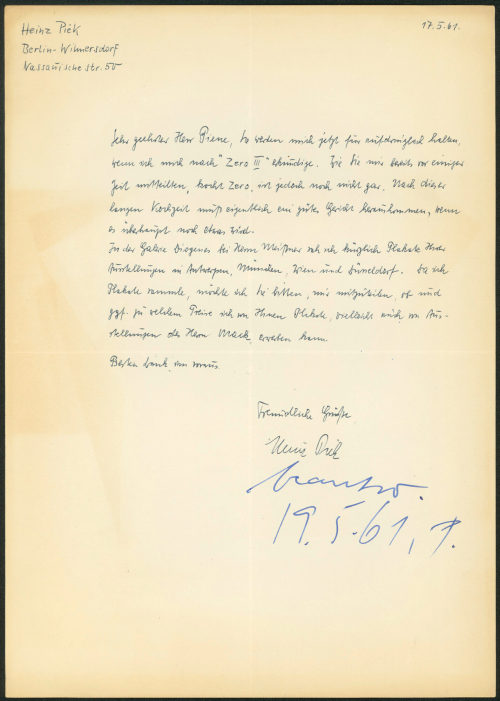 Heinz Piek
17.5.61.
Berlin-Wilmersdorf
Nassauische str. 50
Sehr geehrter Herr Piene, Sie werden mich jetzt für aufdringlich halten,
wenn ich mich nach "Zero III" erkundige. Wie Sie mir bereits vor einiger
Zeit mitteilten, kocht Zero, ist jedoch noch nicht gar. Nach dieser
langen Kochzeit muß eigentlich ein gutes Gericht herauskommen, wenn
es überhaupt noch etwas wird.
In der Galerie Diogenes bei Herrn Meißner sah ich kürzlich Plakate Ihrer
Ausstellungen in Antwerpen, München, Wien und Düsseldorf. Da ich
Plakate sammle, möchte ich Sie bitten, mir mitzuteilen, ob und
ggf. zu welchem Preise ich von Ihnen Plakate, vielleicht auch von Aus-
stellungen des Herrn Mack, erwerben kann.
Besten Dank im voraus.
Freundliche Grüße
Heinz Piek
beantw.
19.5.61, P.